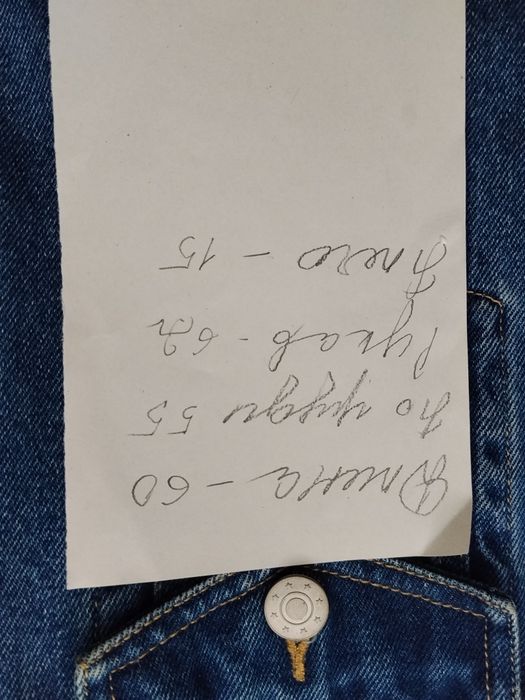 Длина - 60
По груди 55
Рукав - 62
Плечо - 15